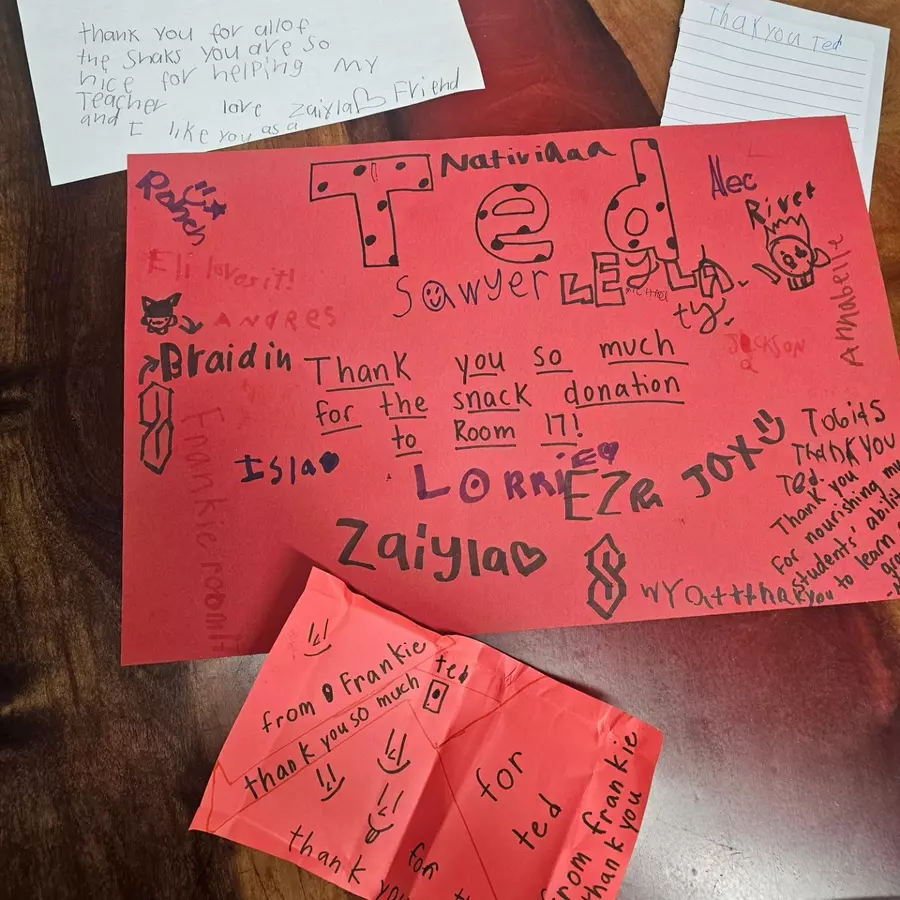 thank you for all of
the snaks you are so
nice for helping my
Teacher love Zaiyla Friend
and I like you as a
Thak you Ted
Ted
Natividaa
Alec
River
Eli loves it!
Sawyer
LEYLA
ty
Annabelle
ANDRES
JACKSON
Braidin
Thank you so much
for the snack donation
to Room 17!
Frankie room 17
Isla
LORRIE
EZRA
JOX
Tobias
Thank you
Ted.
Thank you
For nourishing my
students' abilit
to learn
Zaiyla
Wyatt thakyou
from Frankie
ted
thank you so much
for
ted
from frankie
thank you
thank
for